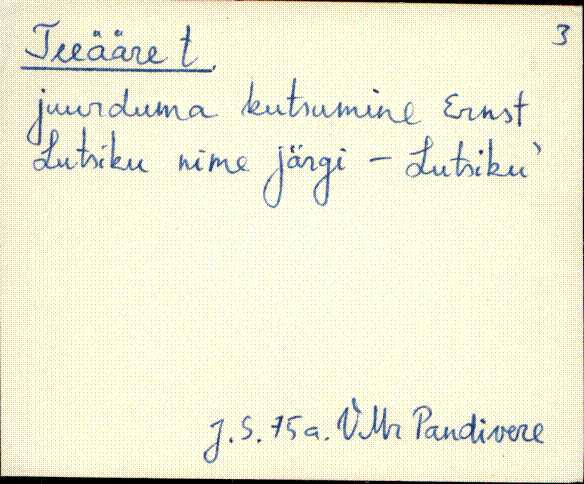 Teeääre t. 3
juurduma kutsumine Ernst
Lutsiku nime järgi – Lutsiku'
J.S. 75a. VMr Pandivere